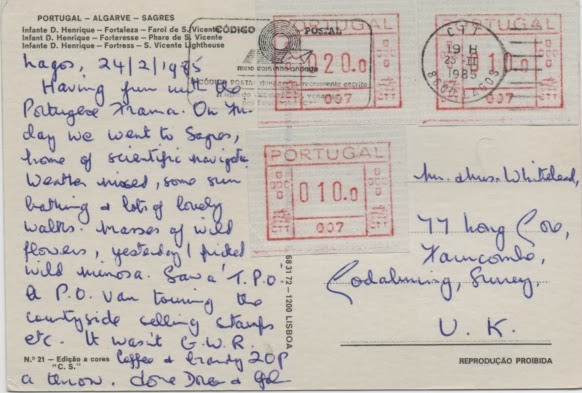 PORTUGAL – ALGARVE – SAGRES
Infante D. Henrique – Fortaleza – Farol de S. Vicente
Infant D. Henrique – Forteresse – Phare de S. Vicente
Infante D. Henrique – Fortress – S. Vicente Lighthouse
Lagos, 24/2/1985
Having fun with the
Portugese Frama. On
day we went to Sagres,
home of scientific
Weather mixed, some sun
bathing & lots of lovely
walks. Masses of wild
flowers, yesterday I picked
wild mimosa. Saw a 'T.P.O.'
a P.O. van touring the
countryside selling stamps
etc. It wasn't G.W.R.
Coffee & brandy 20P
a throw. Love &
N.º 21 – Edição a cores
"C. S."
CÓDIGO POSTAL
meio caminho andado
CÓDIGO POSTAL
020.0
007
010.0
007
CTT
19 H
1985
PORTUGAL
010.0
007
683172 – 1200 LISBOA
Mr. & Mrs. Whiteland,
77 Long
Farncombe,
Godalming, Surrey,
U. K.
REPRODUÇÃO PROIBIDA